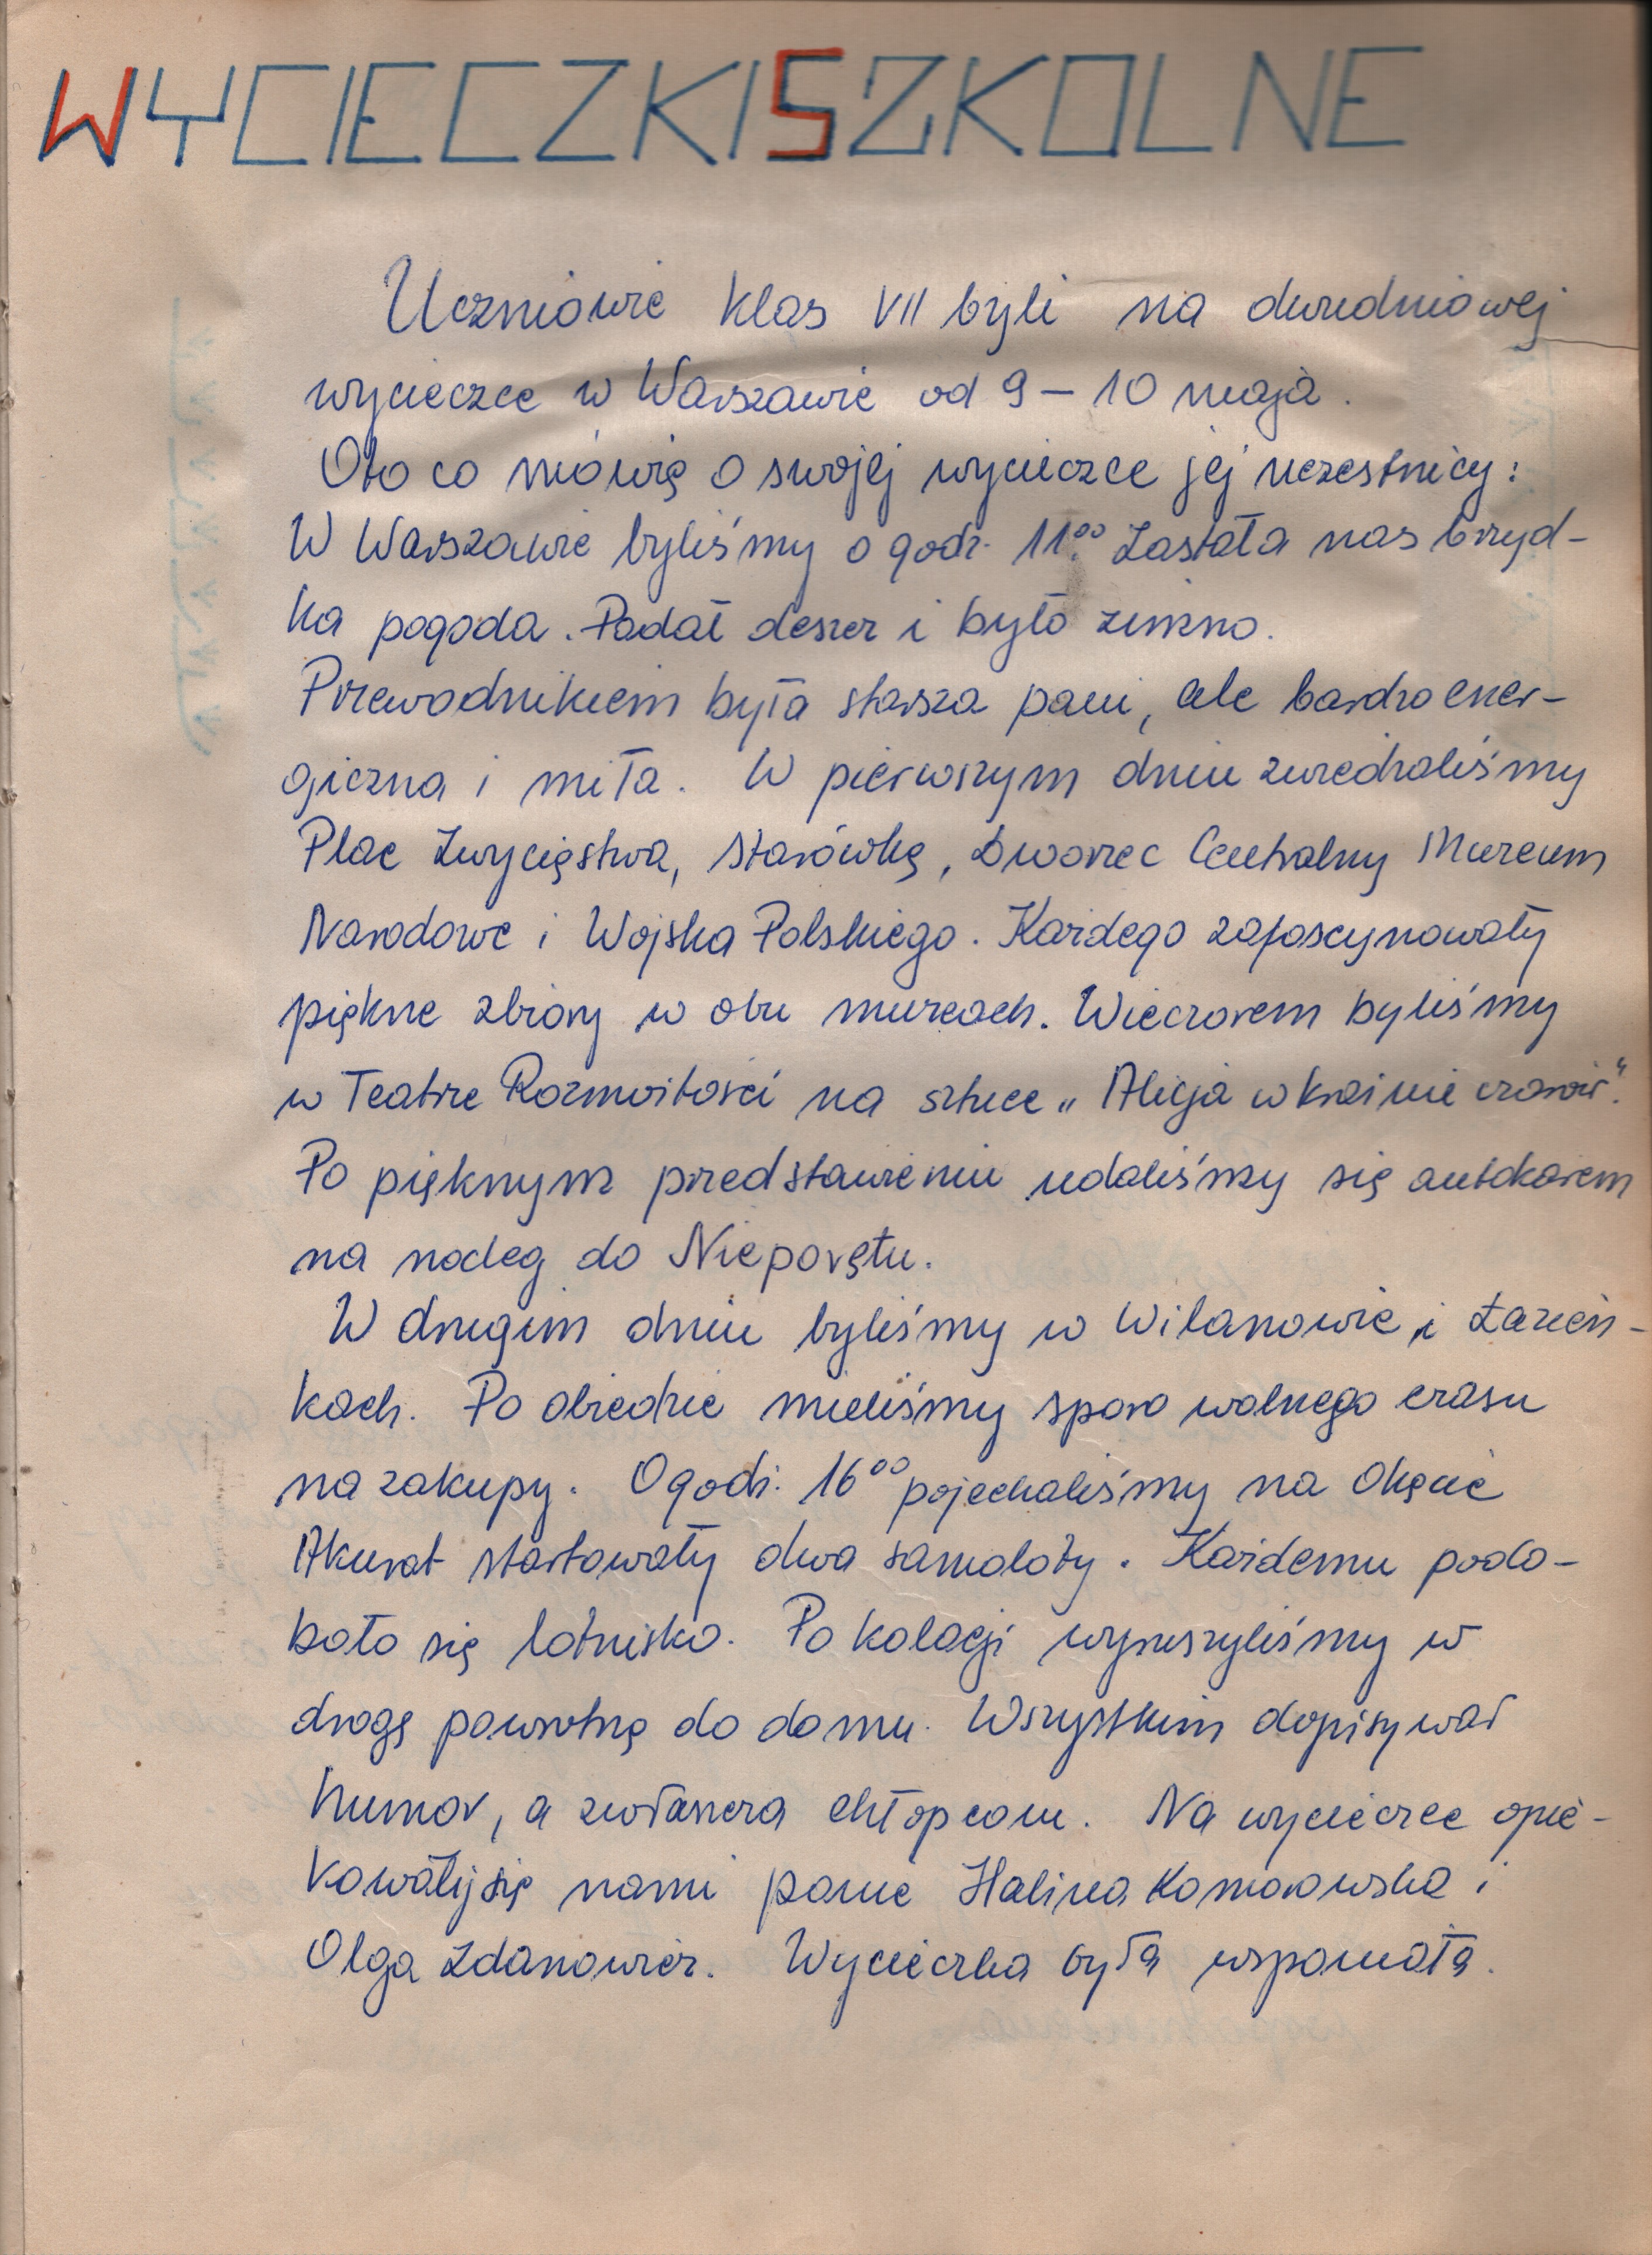 WYCIECZKI SZKOLNE
Uczniowie klas VII byli na dwudniowej
wycieczce w Warszawie od 9 – 10 maja.
Oto co mówią o swojej wycieczce jej uczestnicy:
W Warszawie byliśmy o godz. 11⁰⁰. Zastała nas brzyd-
ka pogoda. Padał deszcz i było zimno.
Przewodnikiem była starsza pani, ale bardzo ener-
giczna i miła. W pierwszym dniu zwiedzaliśmy
Plac Zwycięstwa, Starówkę, Dworzec Centralny Muzeum
Narodowe i Wojska Polskiego. Każdego zafascynowały
piękne zbiory w obu muzeach. Wieczorem byliśmy
w Teatrze Rozmaitości na sztuce „Alicja w krainie czarów".
Po pięknym przedstawieniu udaliśmy się autokarem
na nocleg do Nieporętu.
W drugim dniu byliśmy w Wilanowie i Łazien-
kach. Po obiedzie mieliśmy sporo wolnego czasu
na zakupy. O godz. 16⁰⁰ pojechaliśmy na Okęcie
Akurat startowały dwa samoloty. Każdemu podo-
bało się lotnisko. Po kolacji wyruszyliśmy w
drogę powrotną do domu. Wszystkim dopisywał
humor, a zwłaszcza chłopcom. Na wycieczce opie-
kowały się nami panie Halina Komorowska i
Olga Zdanowicz. Wycieczka była wspaniała.